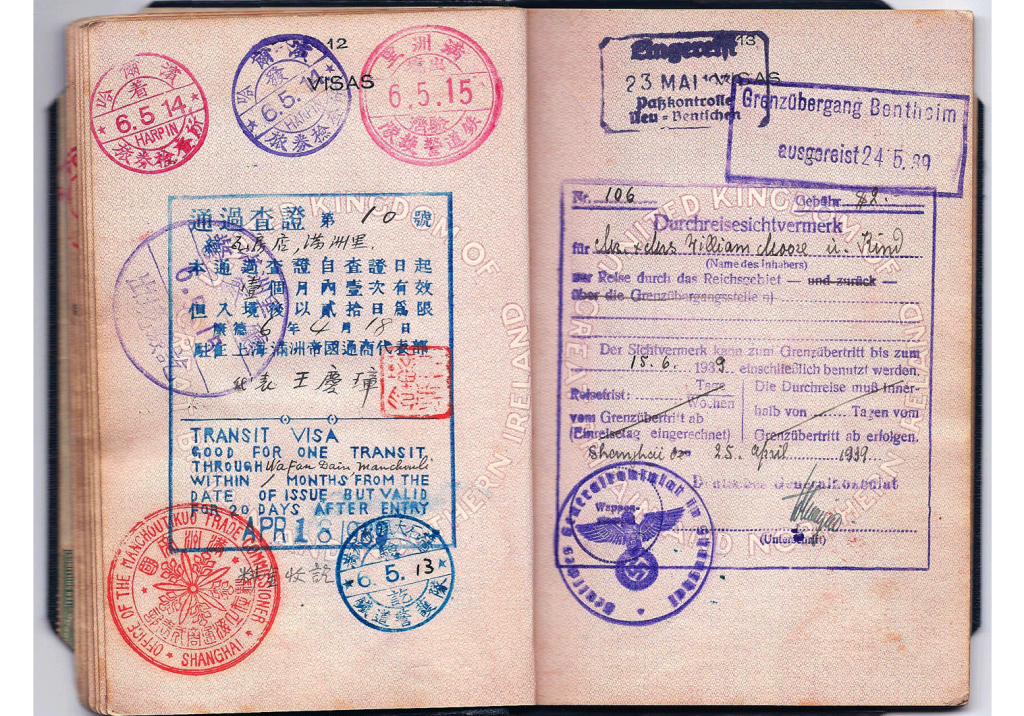 12
VISAS
哈爾濱
着
6.5.14
HARPIN
旅券檢查
哈爾濱
發
6.5.14
HARPIN
旅券檢查
滿洲里
6.5.15
鉄道警護隊
通過査證 第 10 號
瓦房店, 滿洲里.
本通過査證自査證日起
壹個月內壹次有效
但入境後以貳拾日爲限
康德 6 年 4 月 18 日
駐在上海滿洲帝國通商代表部
代表 王慶璋
TRANSIT VISA
GOOD FOR ONE TRANSIT
THROUGH Wafan Dain Manchouli
WITHIN 1 MONTHS FROM THE
DATE OF ISSUE BUT VALID
FOR 20 DAYS AFTER ENTRY
APR 18 1939
OFFICE OF THE MANCHOUTIKUO TRADE COMMISSIONER
SHANGHAI
6.5.13
鐵道警護隊
13
VISAS
Eingereist
23 MAI 1939
Paßkontrolle
Neu-Bentschen
Grenzübergang Bentheim
ausgereist 24.5.39
UNITED KINGDOM OF
Nr. 106 Gebühr $2.-
Durchreisesichtvermerk
für Mr. & Mrs William Moore u. Kind
(Name des Inhabers)
zur Reise durch das Reichsgebiet — und zurück —
über die Grenzübergangsstelle n)
Der Sichtvermerk kann zum Grenzübertritt bis zum
15.6. 1939. einschließlich benutzt werden.
Reisefrist: Tage
Wochen
vom Grenzübertritt ab
(Einreisetag eingerechnet)
Die Durchreise muß inner-
halb von ...... Tagen vom
Grenzübertritt ab erfolgen.
Shanghai den 25. April 1939
Deutsches Generalkonsulat
(Unterschrift)
Wappen
Deutsches Generalkonsulat in Shanghai